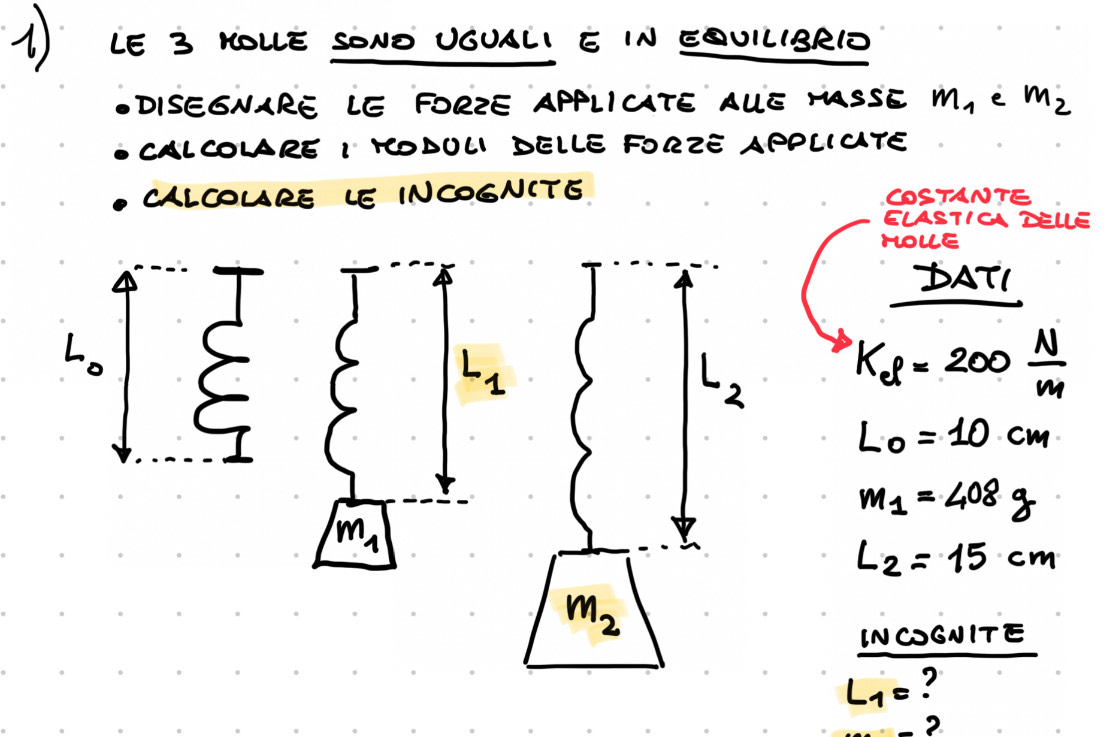 1) LE 3 MOLLE SONO UGUALI E IN EQUILIBRIO
• DISEGNARE LE FORZE APPLICATE ALLE MASSE m₁ e m₂
• CALCOLARE I MODULI DELLE FORZE APPLICATE
• CALCOLARE LE INCOGNITE
COSTANTE
ELASTICA DELLE
MOLLE
DATI
L₀
L₁
L₂
m₁
m₂
Kel = 200 N/m
L₀ = 10 cm
m₁ = 408 g
L₂ = 15 cm
INCOGNITE
L₁ = ?
= ?